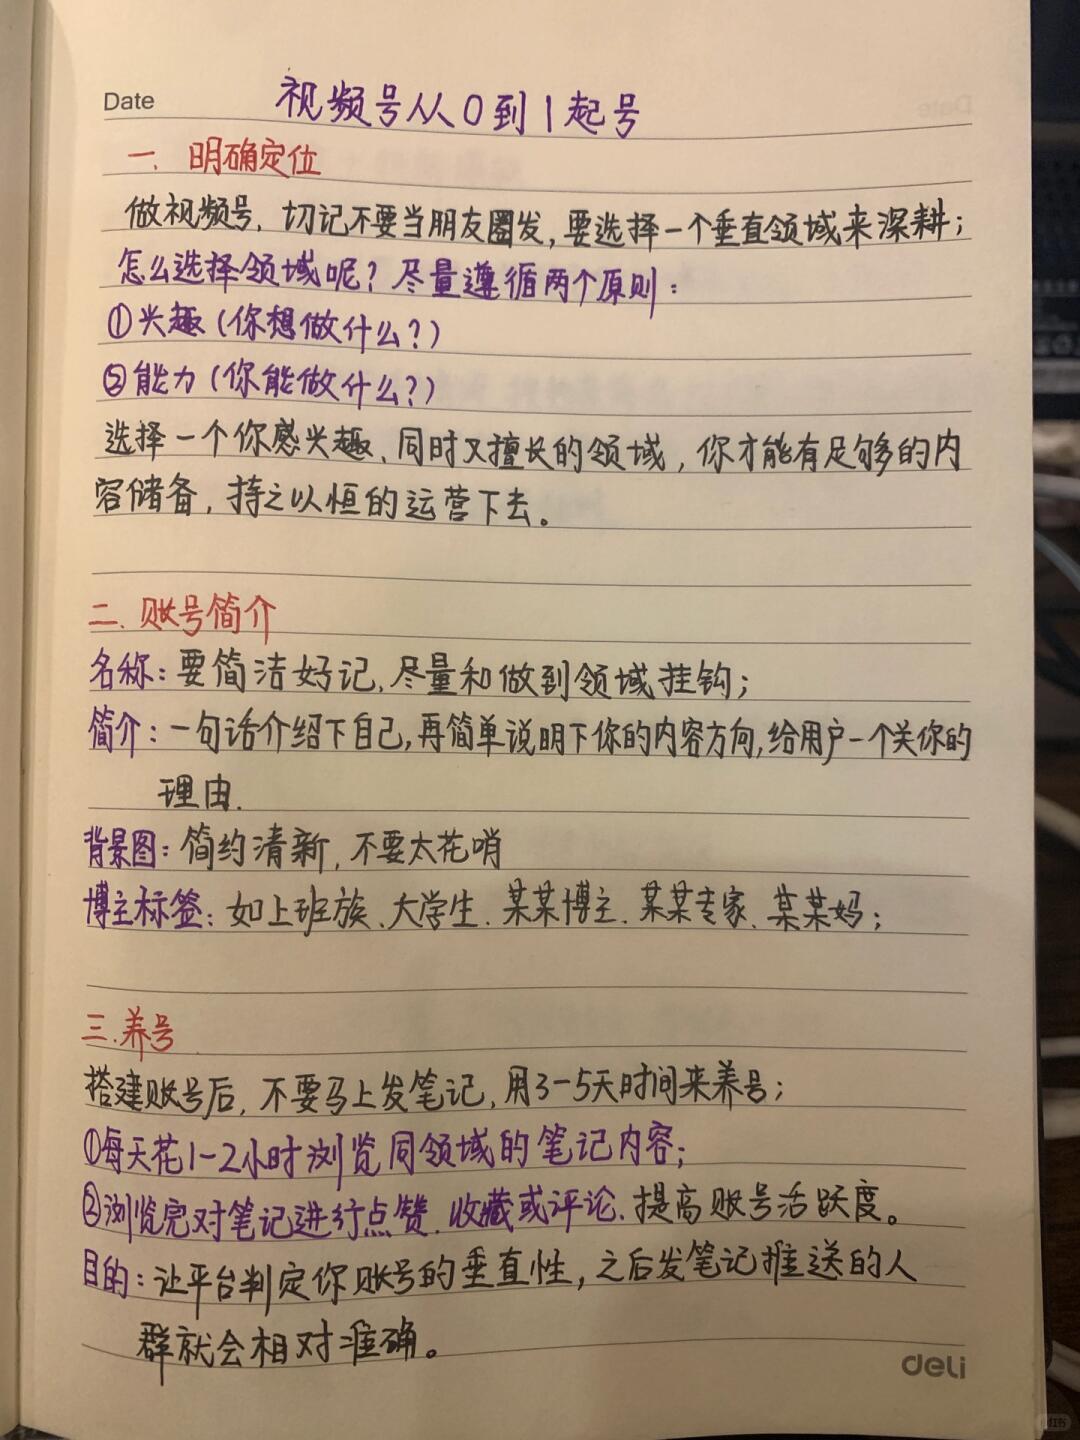 Date
视频号从0到1起号
一、明确定位
做视频号，切记不要当朋友圈发，要选择一个垂直领域来深耕；
怎么选择领域呢？尽量遵循两个原则：
①兴趣（你想做什么？）
②能力（你能做什么？）
选择一个你感兴趣、同时又擅长的领域，你才能有足够的内
容储备，持之以恒的运营下去。
二、账号简介
名称：要简洁好记，尽量和做到领域挂钩；
简介：一句话介绍下自己，再简单说明下你的内容方向，给用户一个关你的
理由.
背景图：简约清新，不要太花哨
博主标签：如上班族、大学生、某某博主、某某专家、某某妈；
三.养号
搭建账号后，不要马上发笔记，用3-5天时间来养号；
①每天花1-2小时浏览同领域的笔记内容；
②浏览完对笔记进行点赞、收藏或评论、提高账号活跃度。
目的：让平台判定你账号的垂直性，之后发笔记推送的人
群就会相对准确。
deli